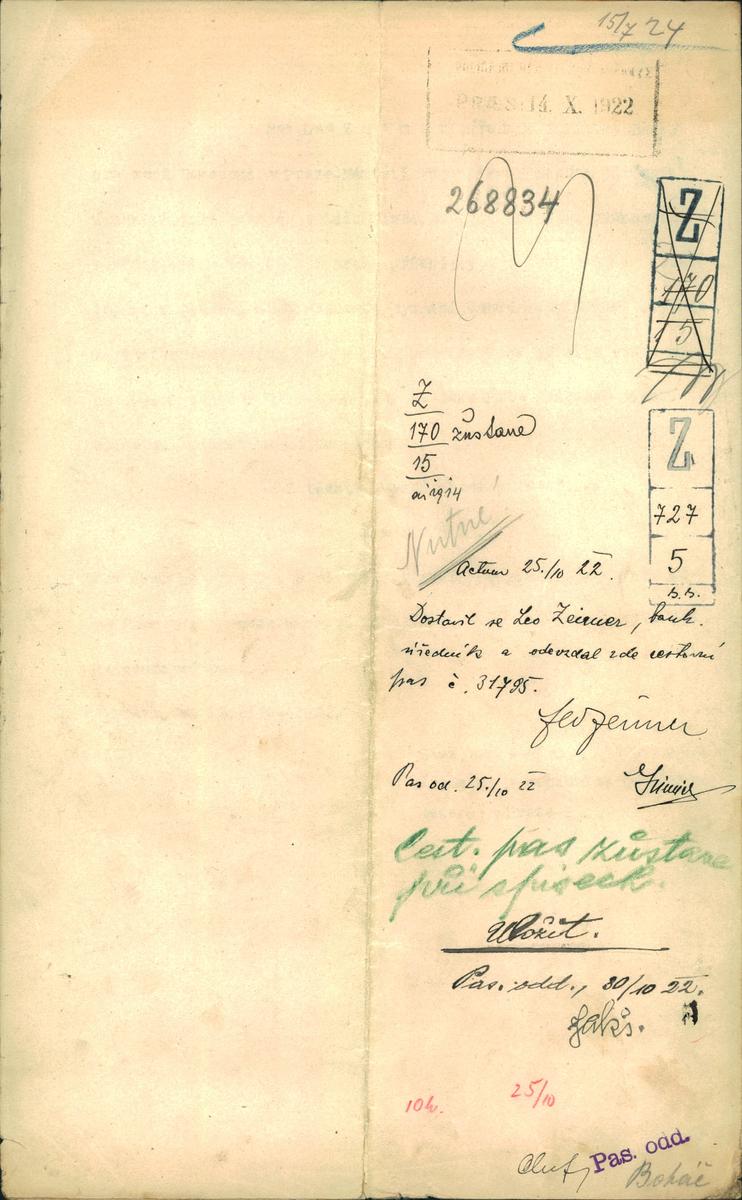 15/7 24
Praes: 14. X. 1922
268834
Z
170
15
Z
170 zůstane
15
ai 1914
Z
727
5
Nutné
Actum 25./10 22.
Dostavil se Leo Zeisner, bank.
úředník a odevzdal zde cestovní
pas č. 31795.
Pas od. 25./10 22
Cest. pas zůstane
při spisech.
Uložit.
Pas. odd., 30/10 22.
Jakš.
10h. 25/10
Pas. odd.
Boháč